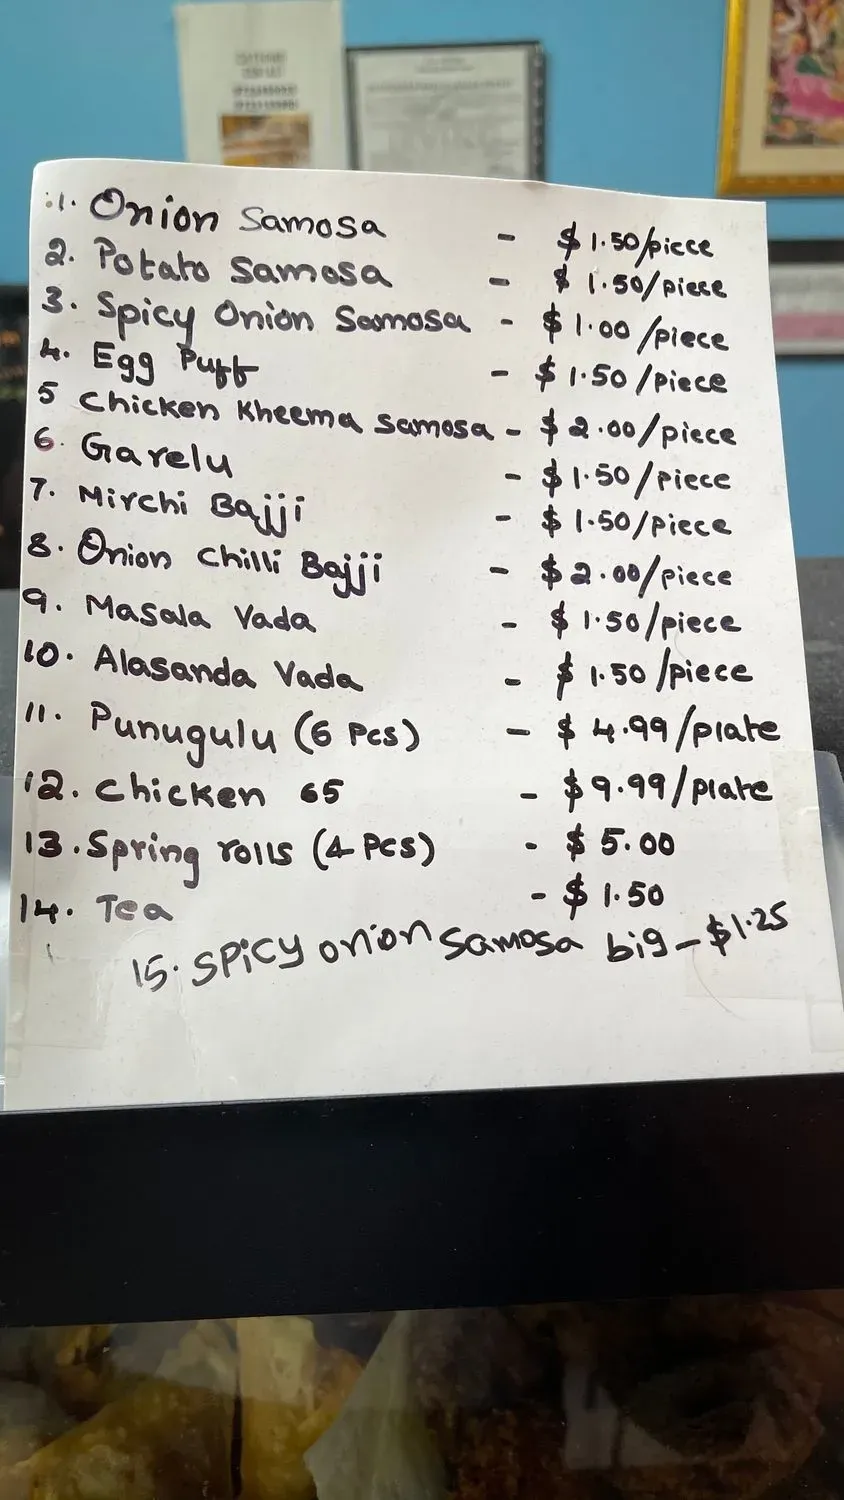 1. Onion Samosa - $1.50/piece
2. Potato Samosa - $1.50/piece
3. Spicy Onion Samosa - $1.00/piece
4. Egg Puff - $1.50/piece
5 Chicken Kheema Samosa - $2.00/piece
6. Garelu - $1.50/piece
7. Mirchi Bajji - $1.50/piece
8. Onion Chilli Bajji - $2.00/piece
9. Masala Vada - $1.50/piece
10. Alasanda Vada - $1.50/piece
11. Punugulu (6 Pcs) - $4.99/plate
12. Chicken 65 - $9.99/plate
13. Spring rolls (4 Pcs) - $5.00
14. Tea - $1.50
15. Spicy onion Samosa big - $1.25